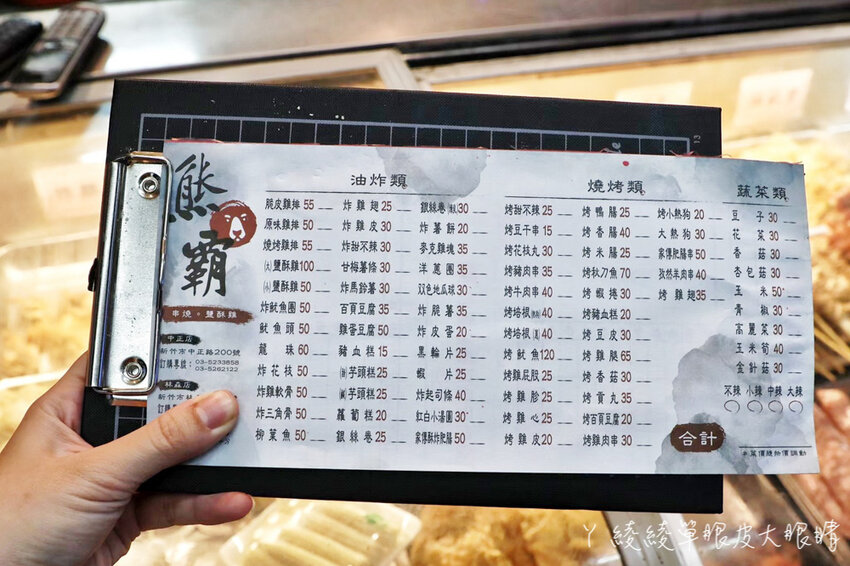 熊霸
串燒。鹽酥雞
中正店
新竹市中正路200號
訂購專線：03-5233858
03-5262122
林森店
新竹市林森
訂購
油炸類
脆皮雞排 55
原味雞排 50
燒烤雞排 55
(大)鹽酥雞100
(小)鹽酥雞 50
炸魷魚圈50
魷魚頭 50
龍珠 60
炸花枝 50
炸雞軟骨 50
炸三角骨 50
柳葉魚 50
炸雞翅 25
炸雞皮 30
炸甜不辣30
甘梅薯條 30
炸馬鈴薯 30
百頁豆腐 35
雞蛋豆腐 50
豬血糕 15
芋頭糕 25
芋頭糕 25
蘿蔔糕 20
銀絲卷 25
銀絲卷 30
炸薯餅 20
麥克雞塊 35
洋蔥圈 35
双色地瓜球30
炸脆薯 35
炸皮蛋 20
黑輪片 25
蝦片 25
炸起司條 20
紅白小湯圓 30
家傳酥炸肥腸 50
燒烤類
烤甜不辣 25
烤豆干串 15
烤花枝丸 30
烤豬肉串 35
烤牛肉串 40
烤培根 40
烤培根 40
烤魷魚120
雞屁股 25
烤雞胗 25
烤雞心 25
烤雞皮 20
烤鴨腸 25
烤香腸 40
烤米腸 25
烤秋刀魚 70
烤蝦捲 30
烤豬血糕 20
烤豆皮 30
烤雞腿 65
烤香菇 30
烤貢丸 35
烤百頁豆腐 20
烤雞肉串 30
烤小熱狗 20
大熱狗 30
家傳脆肥腸 50
孜然羊肉串 40
烤雞翅35
合計
蔬菜類
豆子 30
花菜 30
香菇 30
杏包菇 30
玉米 50
青椒 30
高麗菜 30
玉米筍 40
金針菇 30
不辣 小辣 中辣 大辣
※菜價隨物價調動
13
ㄚ綾綾單眼皮大眼睛